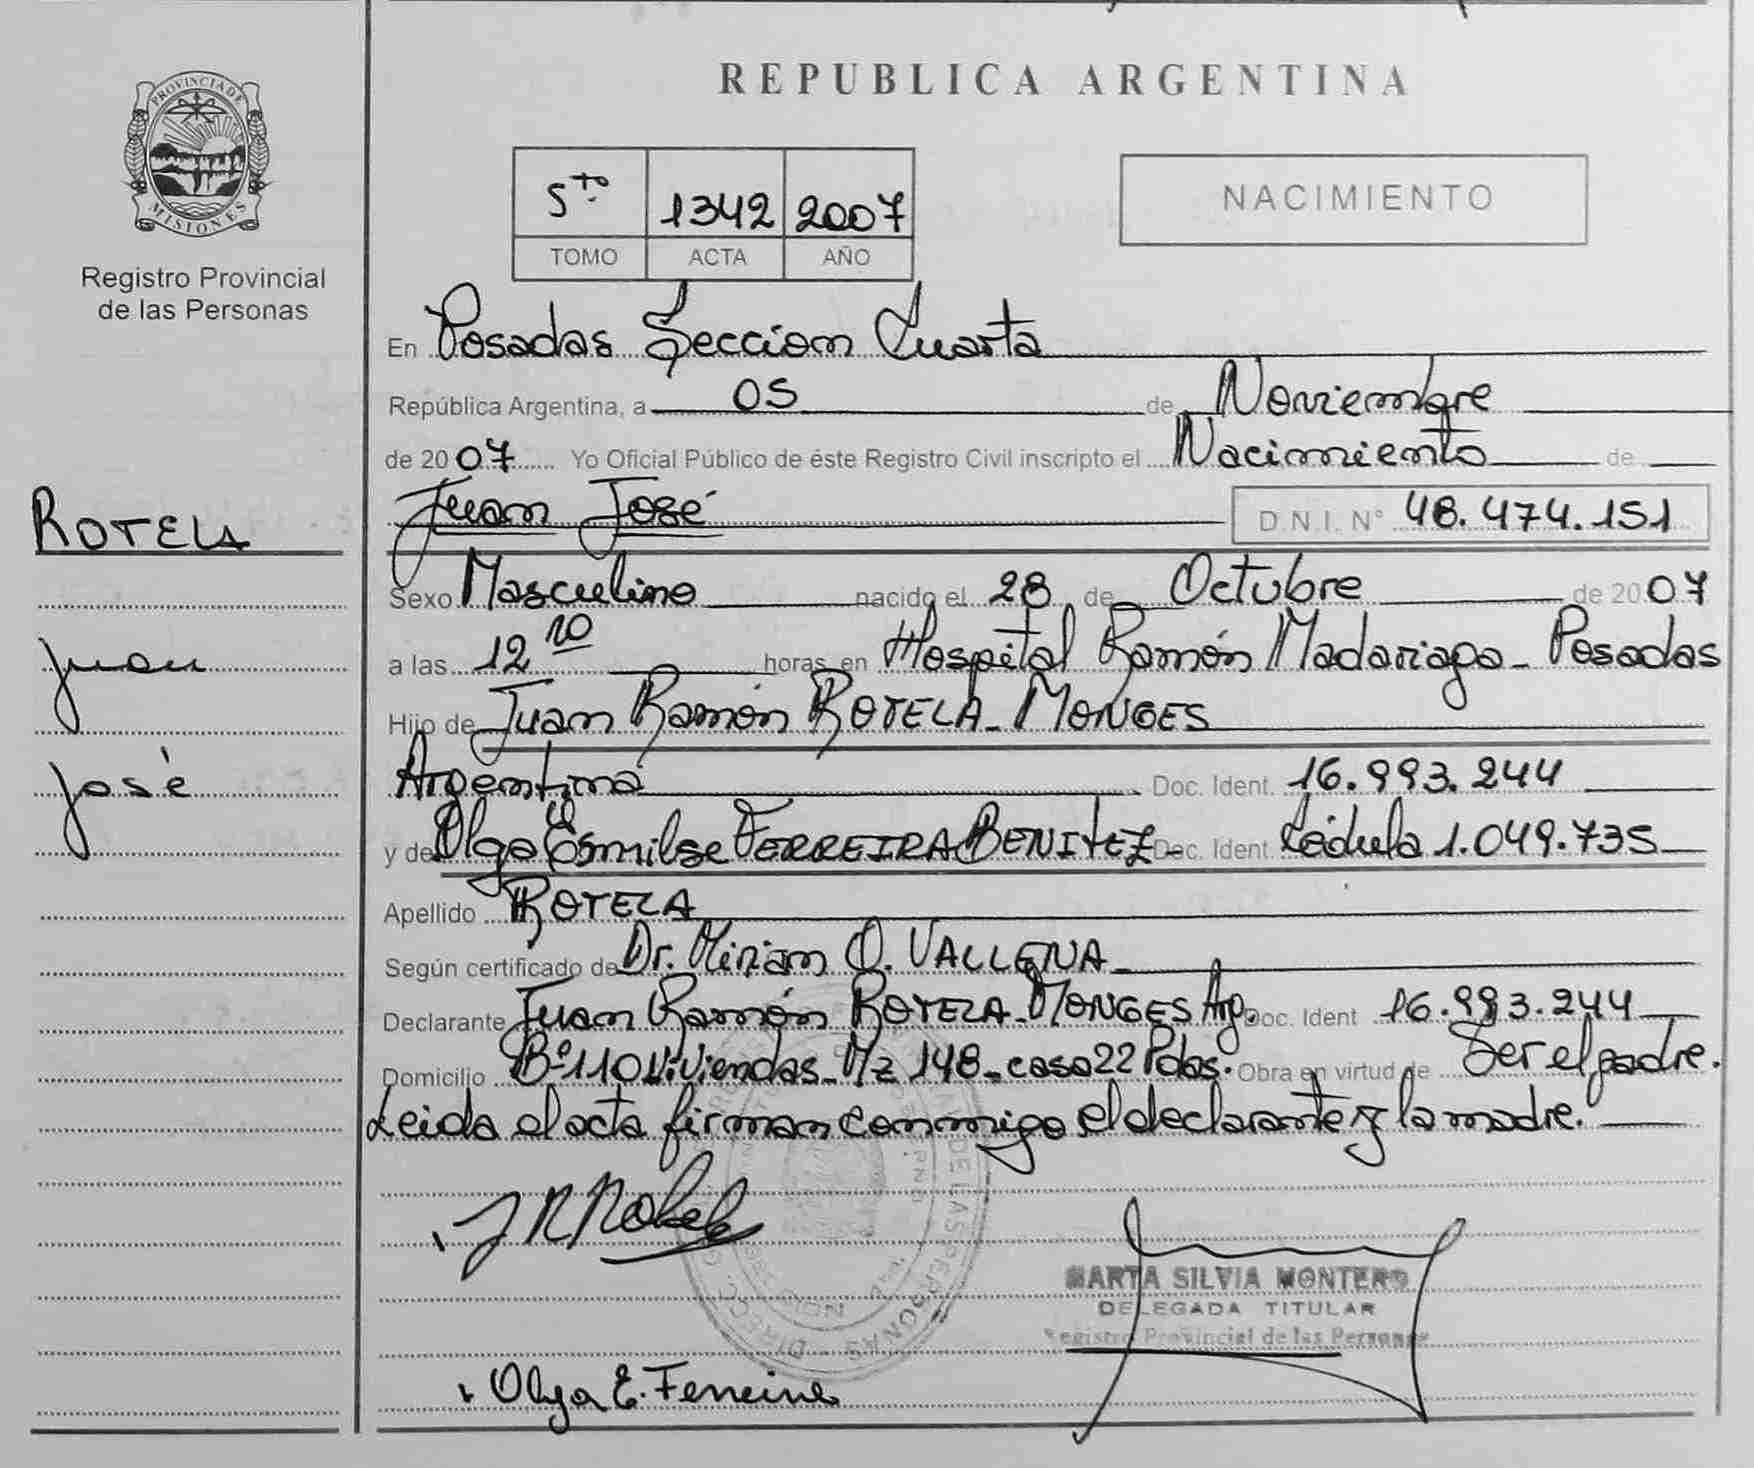 PROVINCIA DE
MISIONES
Registro Provincial
de las Personas
ROTELA
Juan
José
REPUBLICA ARGENTINA
5to 1342 2007
TOMO ACTA AÑO
NACIMIENTO
En Posadas Seccion Cuarta
República Argentina, a 05 de Noviembre
de 2007 Yo Oficial Público de éste Registro Civil inscripto el Nacimiento de
Juan José D N I. N° 48.474.151
Sexo Masculino nacido el 28 de Octubre de 2007
a las 12 10 horas, en Hospital Ramón Madariaga - Posadas
Hijo de Juan Ramón ROTELA - MONGES
Argentina Doc. Ident. 16.993.244
y de Olga Esmilse FERREIRA BENITEZ - Doc. Ident Cédula 1.049.735
Apellido ROTELA
Según certificado de Dr. Miriam O. VALLENA
Declarante Juan Ramón ROTELA - MONGES Arg. Doc. Ident 16.993.244
Domicilio Bº 110 Viviendas - Mz 148 - casa 22 Pdas. Obra en virtud de Ser el padre.
Leida el acta firman conmigo el declarante y la madre.
J R Rotela
MARTA SILVIA MONTERO
DELEGADA TITULAR
Registro Provincial de las Personas
Olga E. Ferreira